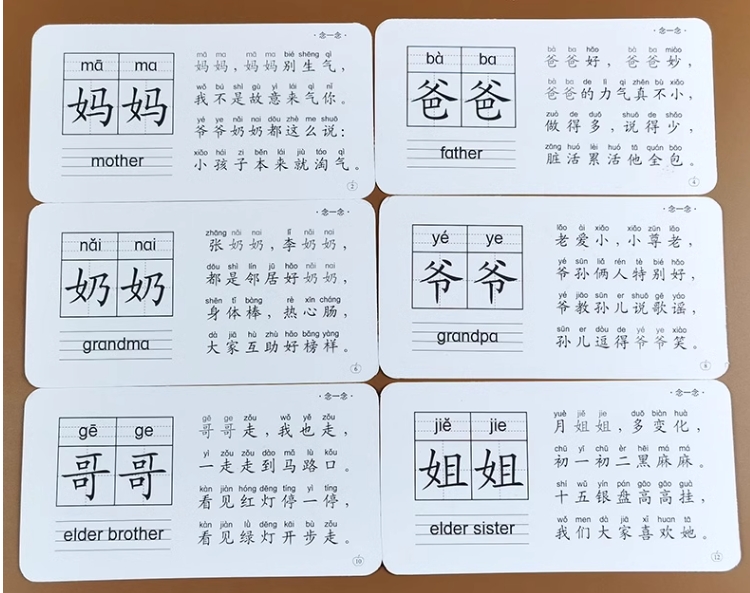 ·念一念·
mā ma
妈妈
mother
mā ma mā ma bié shēng qì
妈妈，妈妈别生气，
wǒ bú shì gù yì lái qì nǐ
我不是故意来气你。
yé ye nǎi nai dōu zhè me shuō
爷爷奶奶都这么说：
xiǎo hái zi běn lái jiù táo qì
小孩子本来就淘气。
2
·念一念·
bà ba
爸爸
father
bà ba hǎo bà ba miào
爸爸好，爸爸妙，
bà ba de lì qi zhēn bù xiǎo
爸爸的力气真不小，
zuò de duō shuō de shǎo
做得多，说得少，
zāng huó lèi huó tā quán bāo
脏活累活他全包。
4
·念一念·
nǎi nai
奶奶
grandma
zhāng nǎi nai lǐ nǎi nai
张奶奶，李奶奶，
dōu shì lín jū hǎo nǎi nai
都是邻居好奶奶，
shēn tǐ bàng rè xīn cháng
身体棒，热心肠，
dà jiā hù zhù hǎo bǎng yàng
大家互助好榜样。
6
·念一念·
yé ye
爷爷
grandpa
lǎo ài xiǎo xiǎo zūn lǎo
老爱小，小尊老，
yé sūn liǎ rén tè bié hǎo
爷孙俩人特别好，
yé jiāo sūn er shuō gē yáo
爷教孙儿说歌谣，
sūn er dòu de yé ye xiào
孙儿逗得爷爷笑。
8
·念一念·
gē ge
哥哥
elder brother
gē ge zǒu wǒ yě zǒu
哥哥走，我也走，
yì zǒu zǒu dào mǎ lù kǒu
一走走到马路口。
kàn jiàn hóng dēng tíng yì tíng
看见红灯停一停，
kàn jiàn lǜ dēng kāi bù zǒu
看见绿灯开步走。
10
·念一念·
jiě jie
姐姐
elder sister
yuè jiě jie duō biàn huà
月姐姐，多变化，
chū yī chū èr hēi má má
初一初二黑麻麻。
shí wǔ yín pán gāo gāo guà
十五银盘高高挂，
wǒ men dà jiā xǐ huan tā
我们大家喜欢她。
12